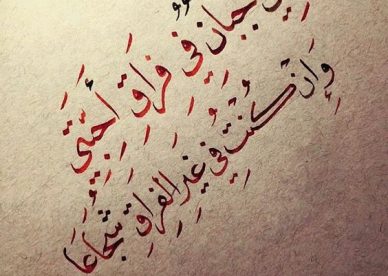 جبان في فراق أحبتي
وان كنت في غير الفراق شجاعا